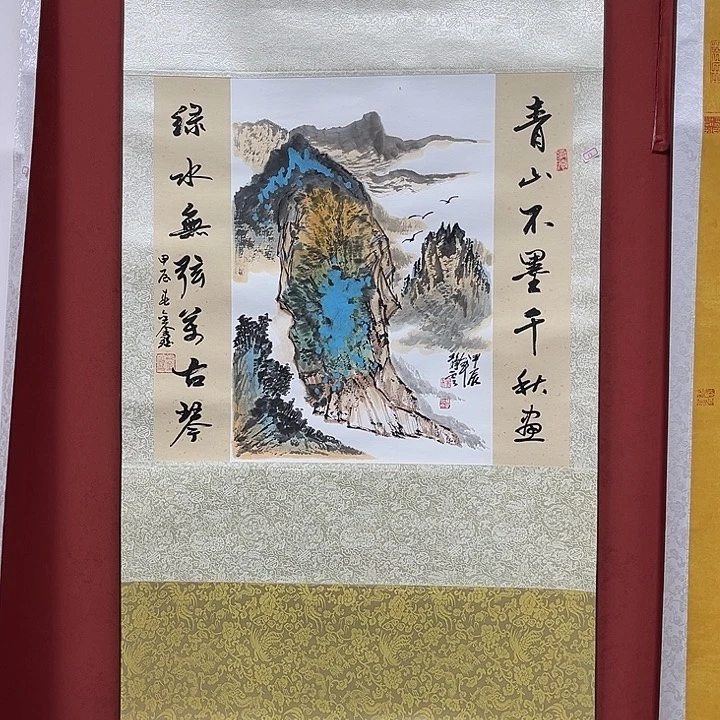 青山不墨千秋画
绿水無弦萬古琴
甲辰
甲辰